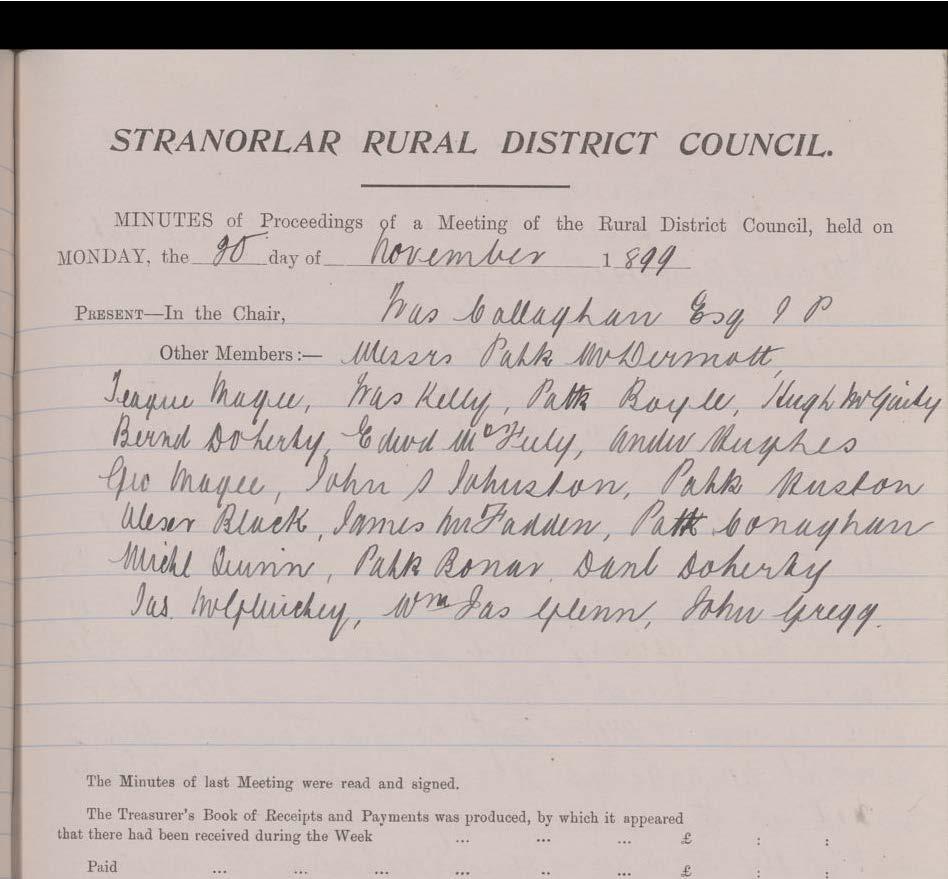 STRANORLAR RURAL DISTRICT COUNCIL.
MINUTES of Proceedings of a Meeting of the Rural District Council, held on
MONDAY, the 20 day of November 1899
PRESENT—In the Chair, Chas Callaghan Esq J P
Other Members:— Messrs Patk McDermott,
Teague Magee, Chas Kelly, Patk Boyle, Hugh McGinty
Bernd Doherty, Edwd McFeely, Andw Hughes
Geo Magee, John S Johnston, Patk Huston
Alexr Black, James McFadden, Patk Conaghan
Michl Quinn, Patk Bonar, Danl Doherty
Jas. McGlinchey, Wm Jas Glenn, John Gregg.
The Minutes of last Meeting were read and signed.
The Treasurer's Book of Receipts and Payments was produced, by which it appeared
that there had been received during the Week ... ... ... £ : :
Paid ... ... ... ... .. ... £ : :